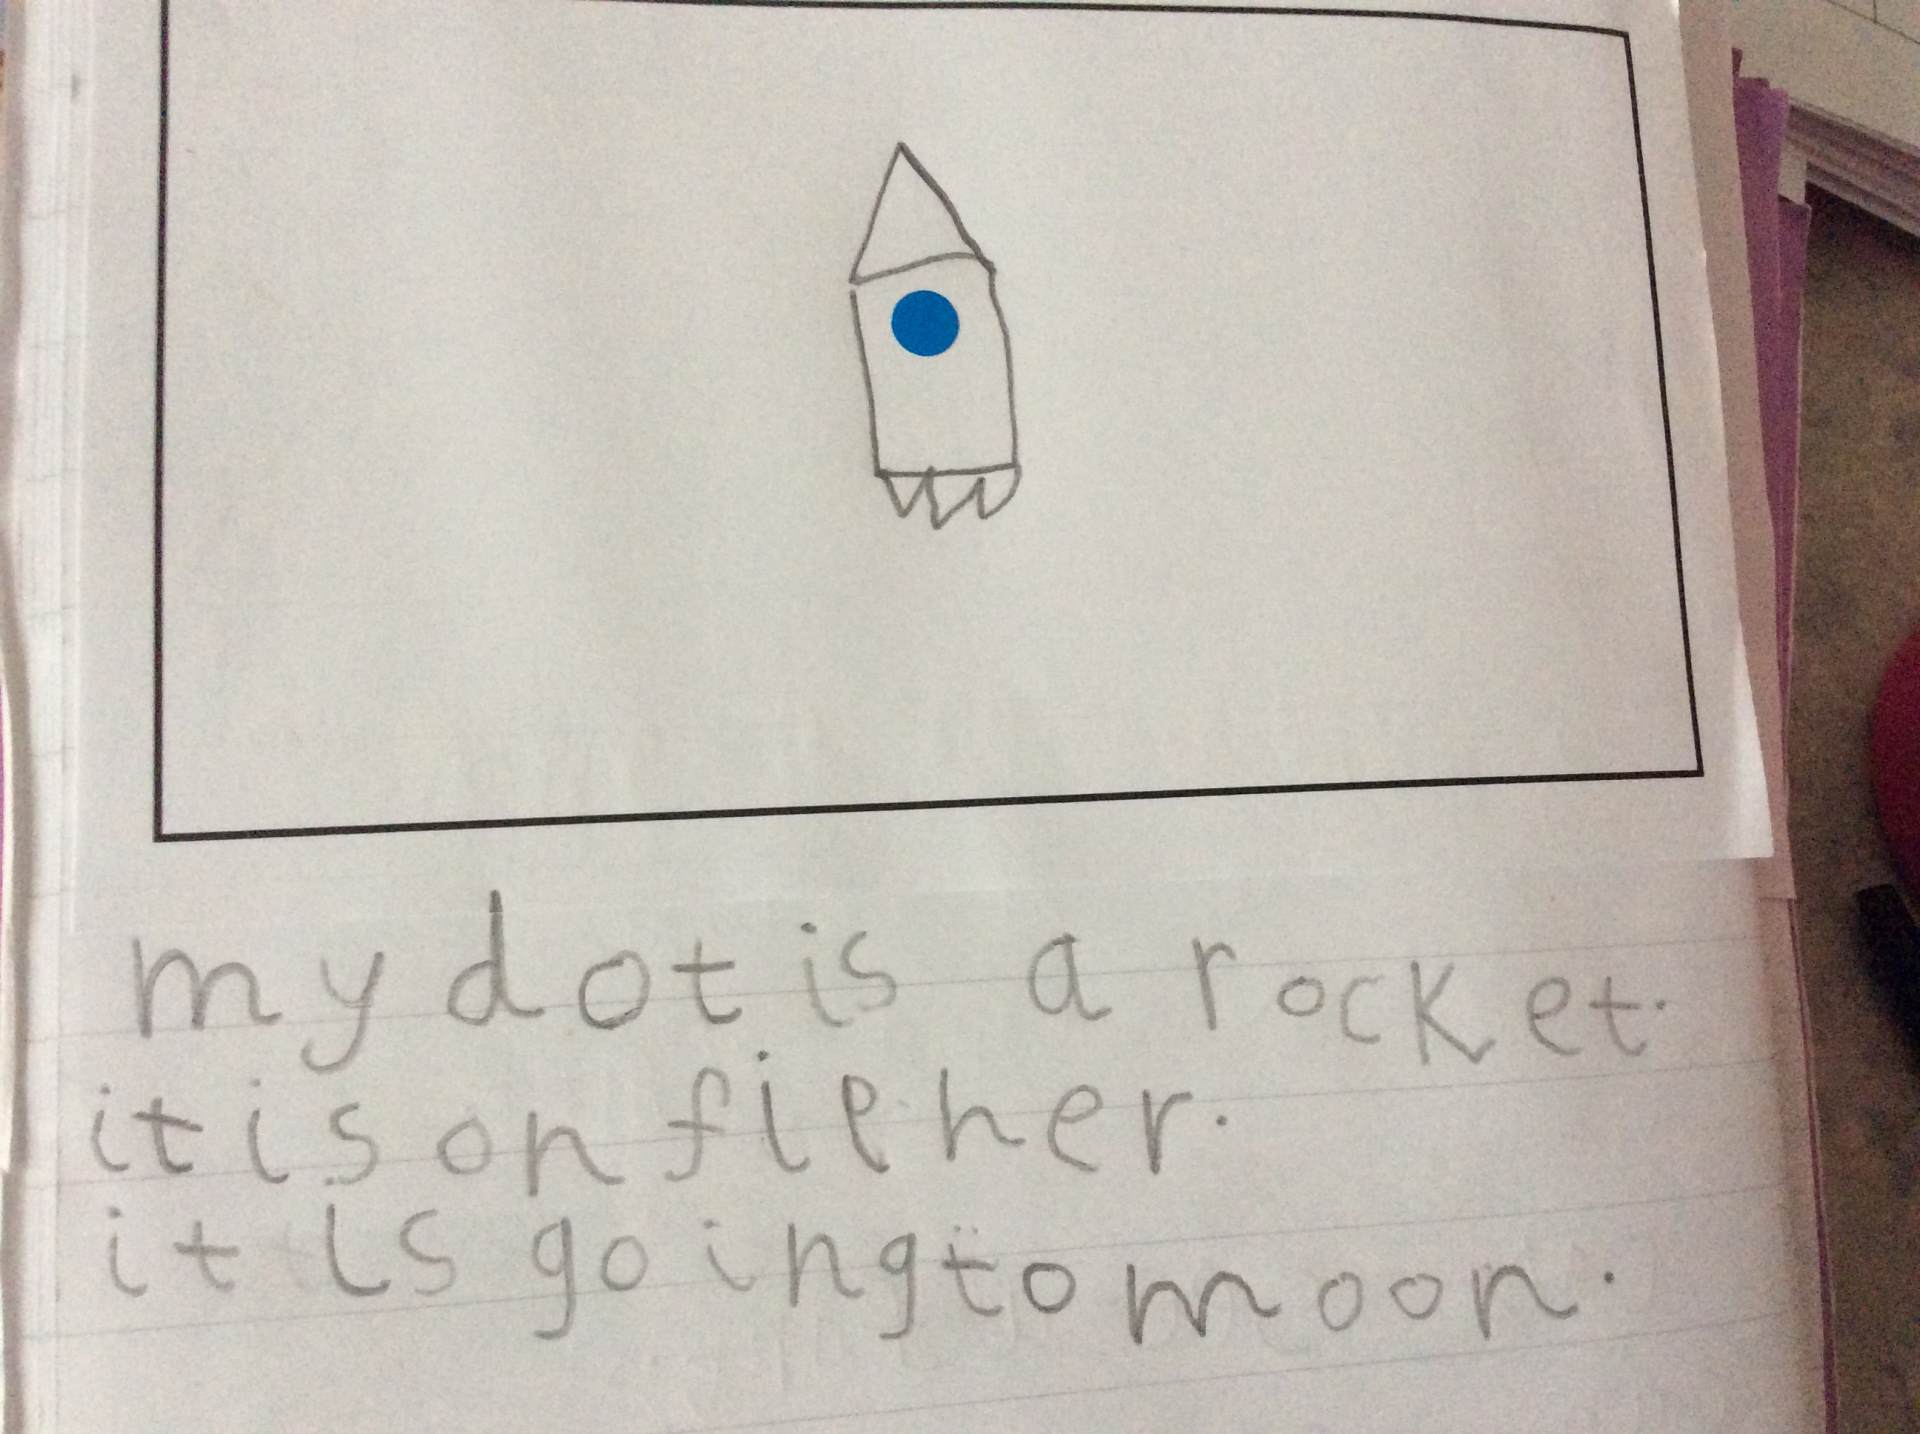 my dot is a rocket.
it is on fieher.
it is going to moon.